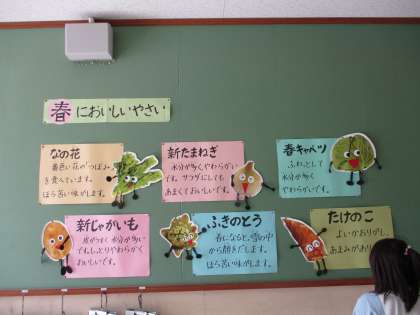 春においしいやさい
なの花
黄色い花の「つぼみ」
を食べています。
ほろ苦い味がします。
新たまねぎ
水分が多く、やわらかい
です。サラダにしても
あまくておいしいです。
春キャベツ
ふわっとして
水分が多く
やわらかです。
新じゃがいも
皮がうすく 水分が多い
です。しっとりやわらかく
おいしいです。
ふきのとう
春になると、雪の中
から顔をだします。
ほろ苦い味がします。
たけのこ
よいかおりがし、
あまみがあり